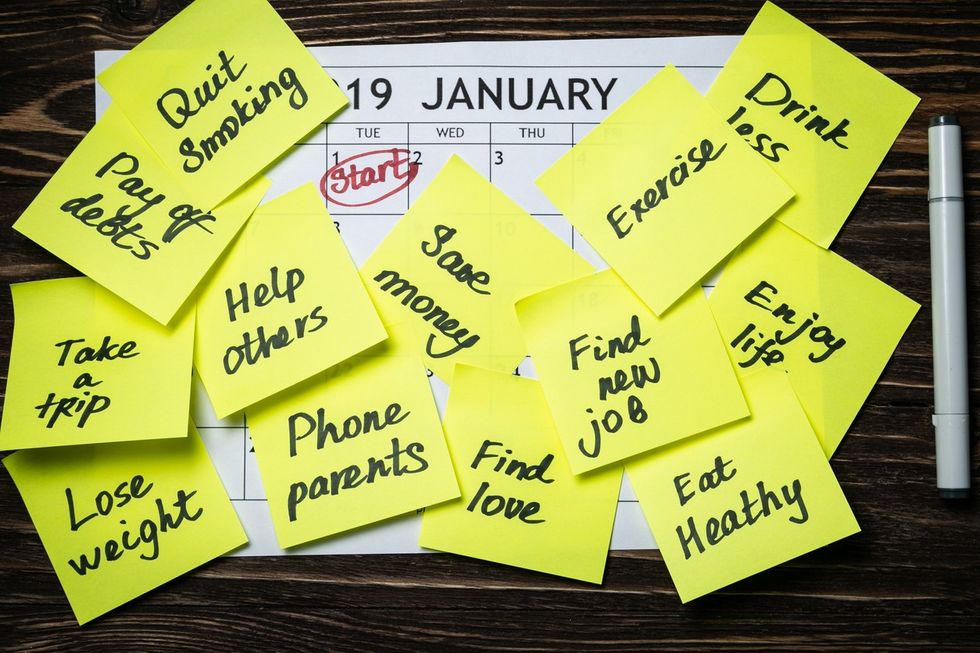 19 JANUARY
TUE WED THU
1 2 3 4
Start
10
18
Quit
Smoking
Pay off
debts
Take
a
trip
Lose
weight
Help
others
Phone
parents
Save
money
Find
love
Exercise
Drink
less
Find
new
job
Enjoy
life
Eat
Heathy